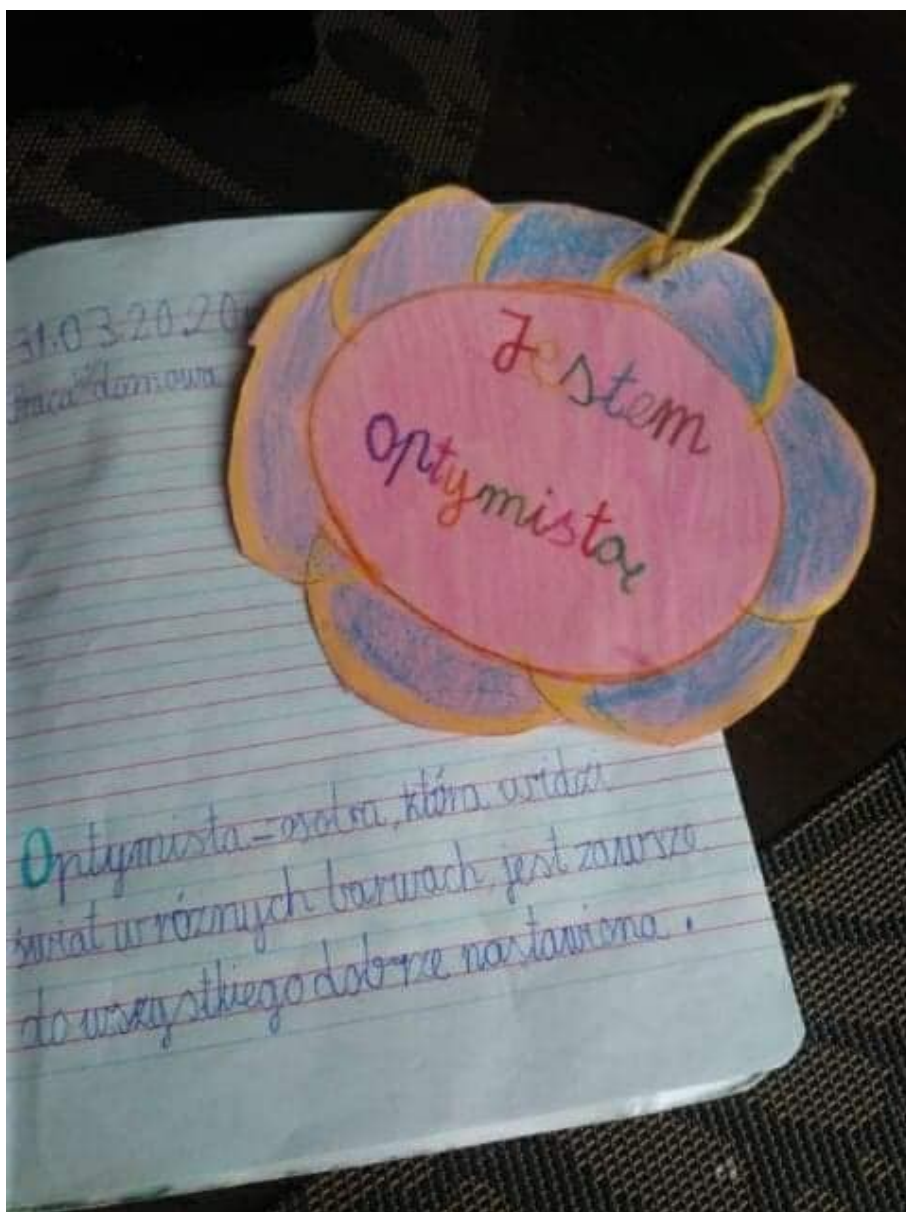 31.03.2020
Praca domowa
Jestem
optymistą
Optymista – osoba, która widzi
świat w różnych barwach, jest zawsze
do wszystkiego dobrze nastawiona.